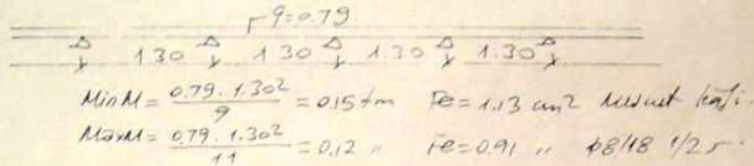 q=0.79
1.30 1.30 1.30 1.30
Min M = 0.79 . 1.30² / 9 = 0.15 tm Fe = 1.13 cm² Mesnet
Max M = 0.79 . 1.30² / 11 = 0.12 " Fe = 0.91 " φ8/18 1/2